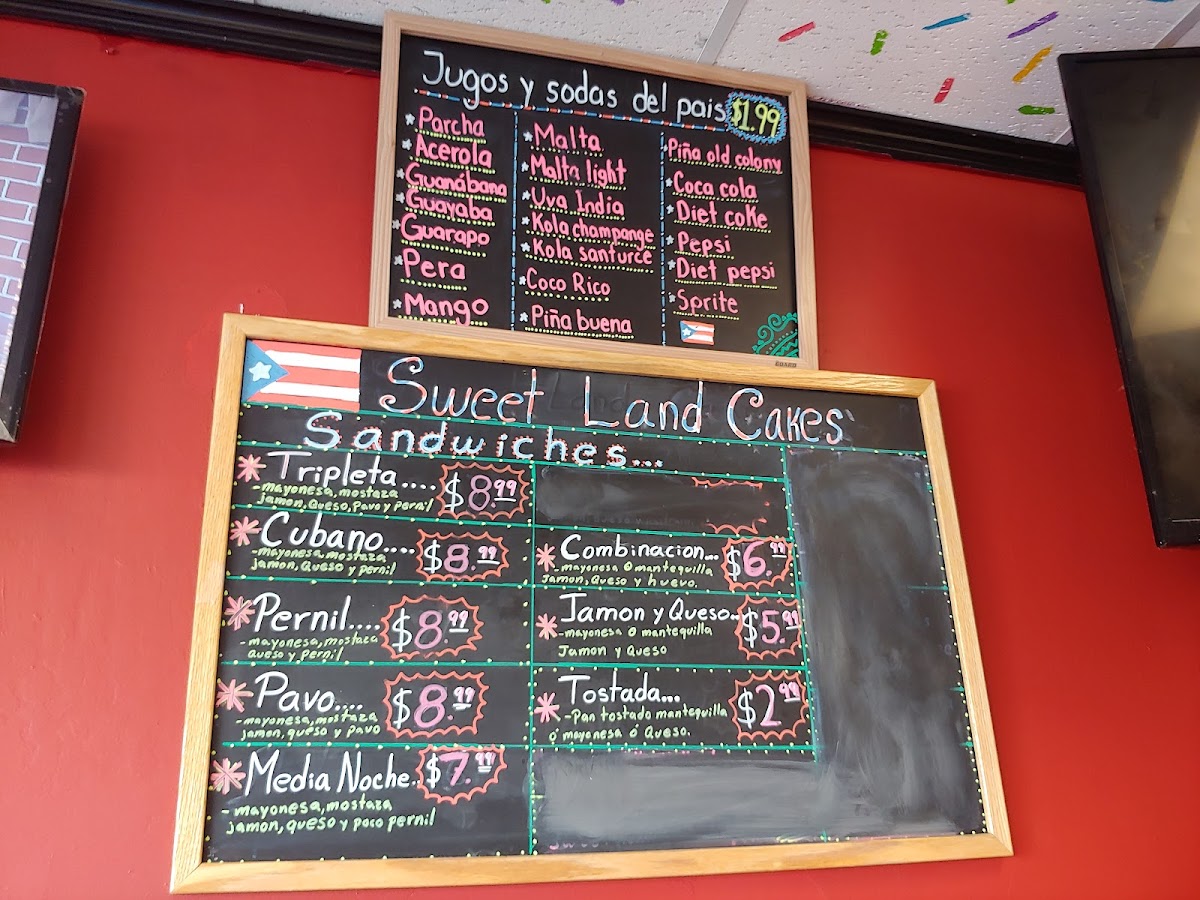 Jugos y sodas del pais $1.99
* Parcha
* Acerola
* Guanábana
* Guayaba
* Guarapo
* Pera
* Mango
* Malta
* Malta light
* Uva India
* Kola champange
* Kola santurce
* Coco Rico
* Piña buena
* Piña old colony
* Coca cola
* Diet coke
* Pepsi
* Diet pepsi
* Sprite
Sweet Land Cakes
Sandwiches...
* Tripleta.... $8.99
-mayonesa, mostaza
jamon, Queso, Pavo y Pernil
* Cubano.... $8.99
-mayonesa mostaza
jamon, Queso y pernil
* Pernil.... $8.99
-mayonesa, mostaza
Queso y pernil
* Pavo.... $8.99
-mayonesa, mostaza
jamon, queso y pavo
* Media Noche.. $7.99
-mayonesa, mostaza
jamon, queso y poco pernil
* Combinacion... $6.99
-mayonesa o mantequilla
jamon, Queso y huevo.
* Jamon y Queso.. $5.99
-mayonesa o mantequilla
Jamon y Queso
* Tostada... $2.99
-Pan tostado mantequilla
ó mayonesa ó Queso.